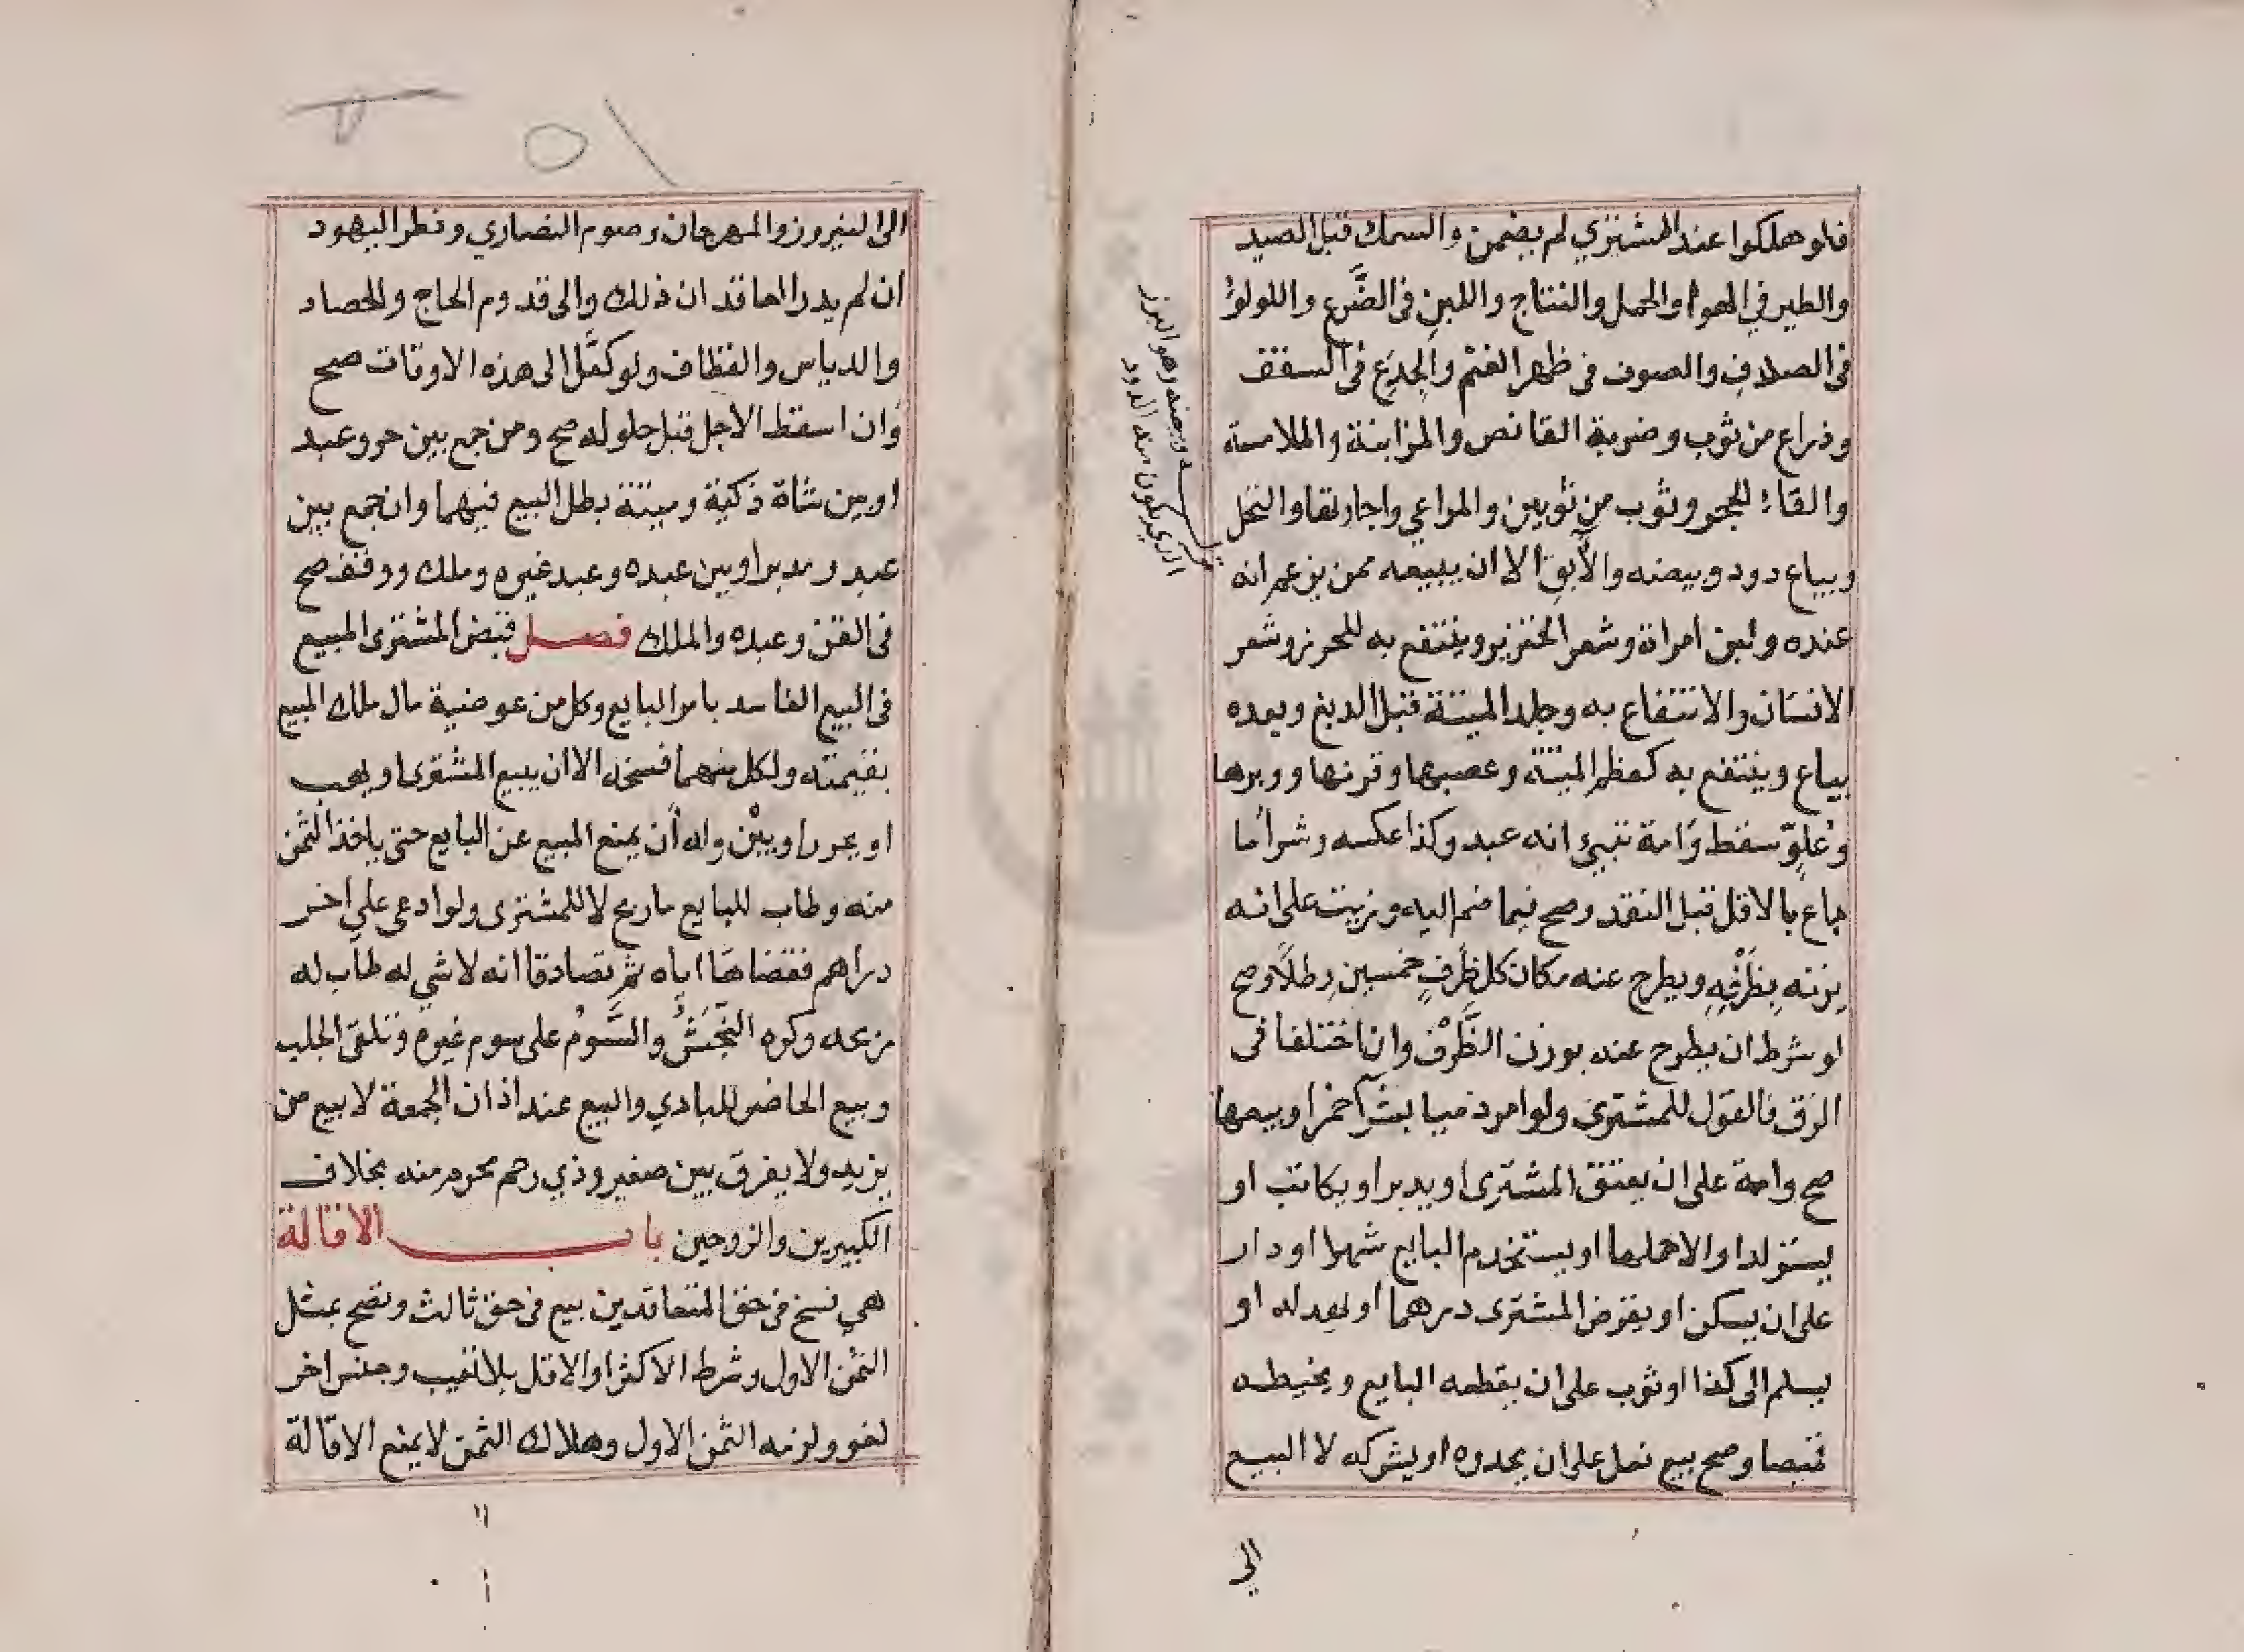 فلو هلكوا عند المشتري لم يضمن والسمك قبل الصيد
والطير في الهواء والحمل والنتاج واللبن فى الضَّرع واللولؤ
فى الصدف والصوف فى ظهر الغنم والجذع فى السقف
وذراع من ثوب وضربة القانص والمزابنة والملامسة
والقاء الحجر وثوب من ثوبين والمراعي واجارتها والنحل
ويباع دود وبيضه والآبق الا ان يبيعه ممن يزعم انه
عنده ولبن امراة وشعر الخنزير وينتفع به للخرز وشعر
الانسان والانتفاع به وجلد الميتة قبل الدبغ وبعده
يباع وينتفع به كعظم الميتة وعصبها وقرنها ووبرها
وعلوّ سقط وامة تبيّن انه عبد وكذا عكسه وشرا ما
باع بالاقل قبل النقد وصح فيما ضم اليه وزيت على انه
يزنه بِظَرْفِهِ ويطرح عنه مكان كل ظرفٍ خمسين رطلًا وصح
لو شرط ان يطرح عنه بوزن الظَّرْف وان اختلفا فى
الزق فالقول للمشترى ولو امر ذميا بشرآ خمر او بيعها
صح وامة على ان يعتق المشترى او يدبر او يكاتب او
يستولد او الا حملها او يستخدم البايع شهرا او دار
على ان يسكن او يقرض المشترى درهما او يهد له او
يسلم الى كذا او ثوب على ان يقطعه البايع ويخيطه
قميصا وصح بيع نعل على ان يحدوه او يشركه لا البيع
الي
وبيضه وهو البزر
الذي يكون منه الدود
الى النيروز والمهرجان وصوم النصاري وفطر اليهود
ان لم يدر العاقدان ذلك والى قدوم الحاج والحصاد
والدياس والقطاف ولو كفَّل الى هذه الاوقات صح
وان اسقط الاجل قبل حلوله صح ومن جمع بين حر وعبد
او بين شاة ذكية وميتة بطل البيع فيهما وان جمع بين
عبد ومدبر او بين عبده وعبد غيره وملك ووقف صح
فى القن وعبده والملك فصل قبض المشترى المبيع
فى البيع الفاسد بامر البايع وكل من عوضيه مال ملك المبيع
بقيمته ولكل منهما فسخه الا ان يبيع المشترى او يهب
او يحرر او يبنى وله أن يمنع المبيع عن البايع حتى ياخذ الثمن
منه وطاب للبايع ما ربح لا للمشترى ولو ادعى على أخر
دراهم فقضاها اياه ثم تصادقا انه لا شي له طاب له
ربحه وكره النَّجَشُ والسَّوْمُ على سوم غيره وتلقى الجلب
وبيع الحاضر للبادي والبيع عند اذان الجمعة لا بيع من
يزيد ولا يفرق بين صغير وذي رحم محرم منه بخلاف
الكبيرين والزوجين باب الاقالة
هي فسخ فى حق المتعاقدين بيع فى حق ثالث وتصح بمثل
الثمن الاول وشرط الاكثر او الاقل بلا تغيب وجنس اخر
لغو ولزمه الثمن الاول وهلاك الثمن لا يمنع الاقالة